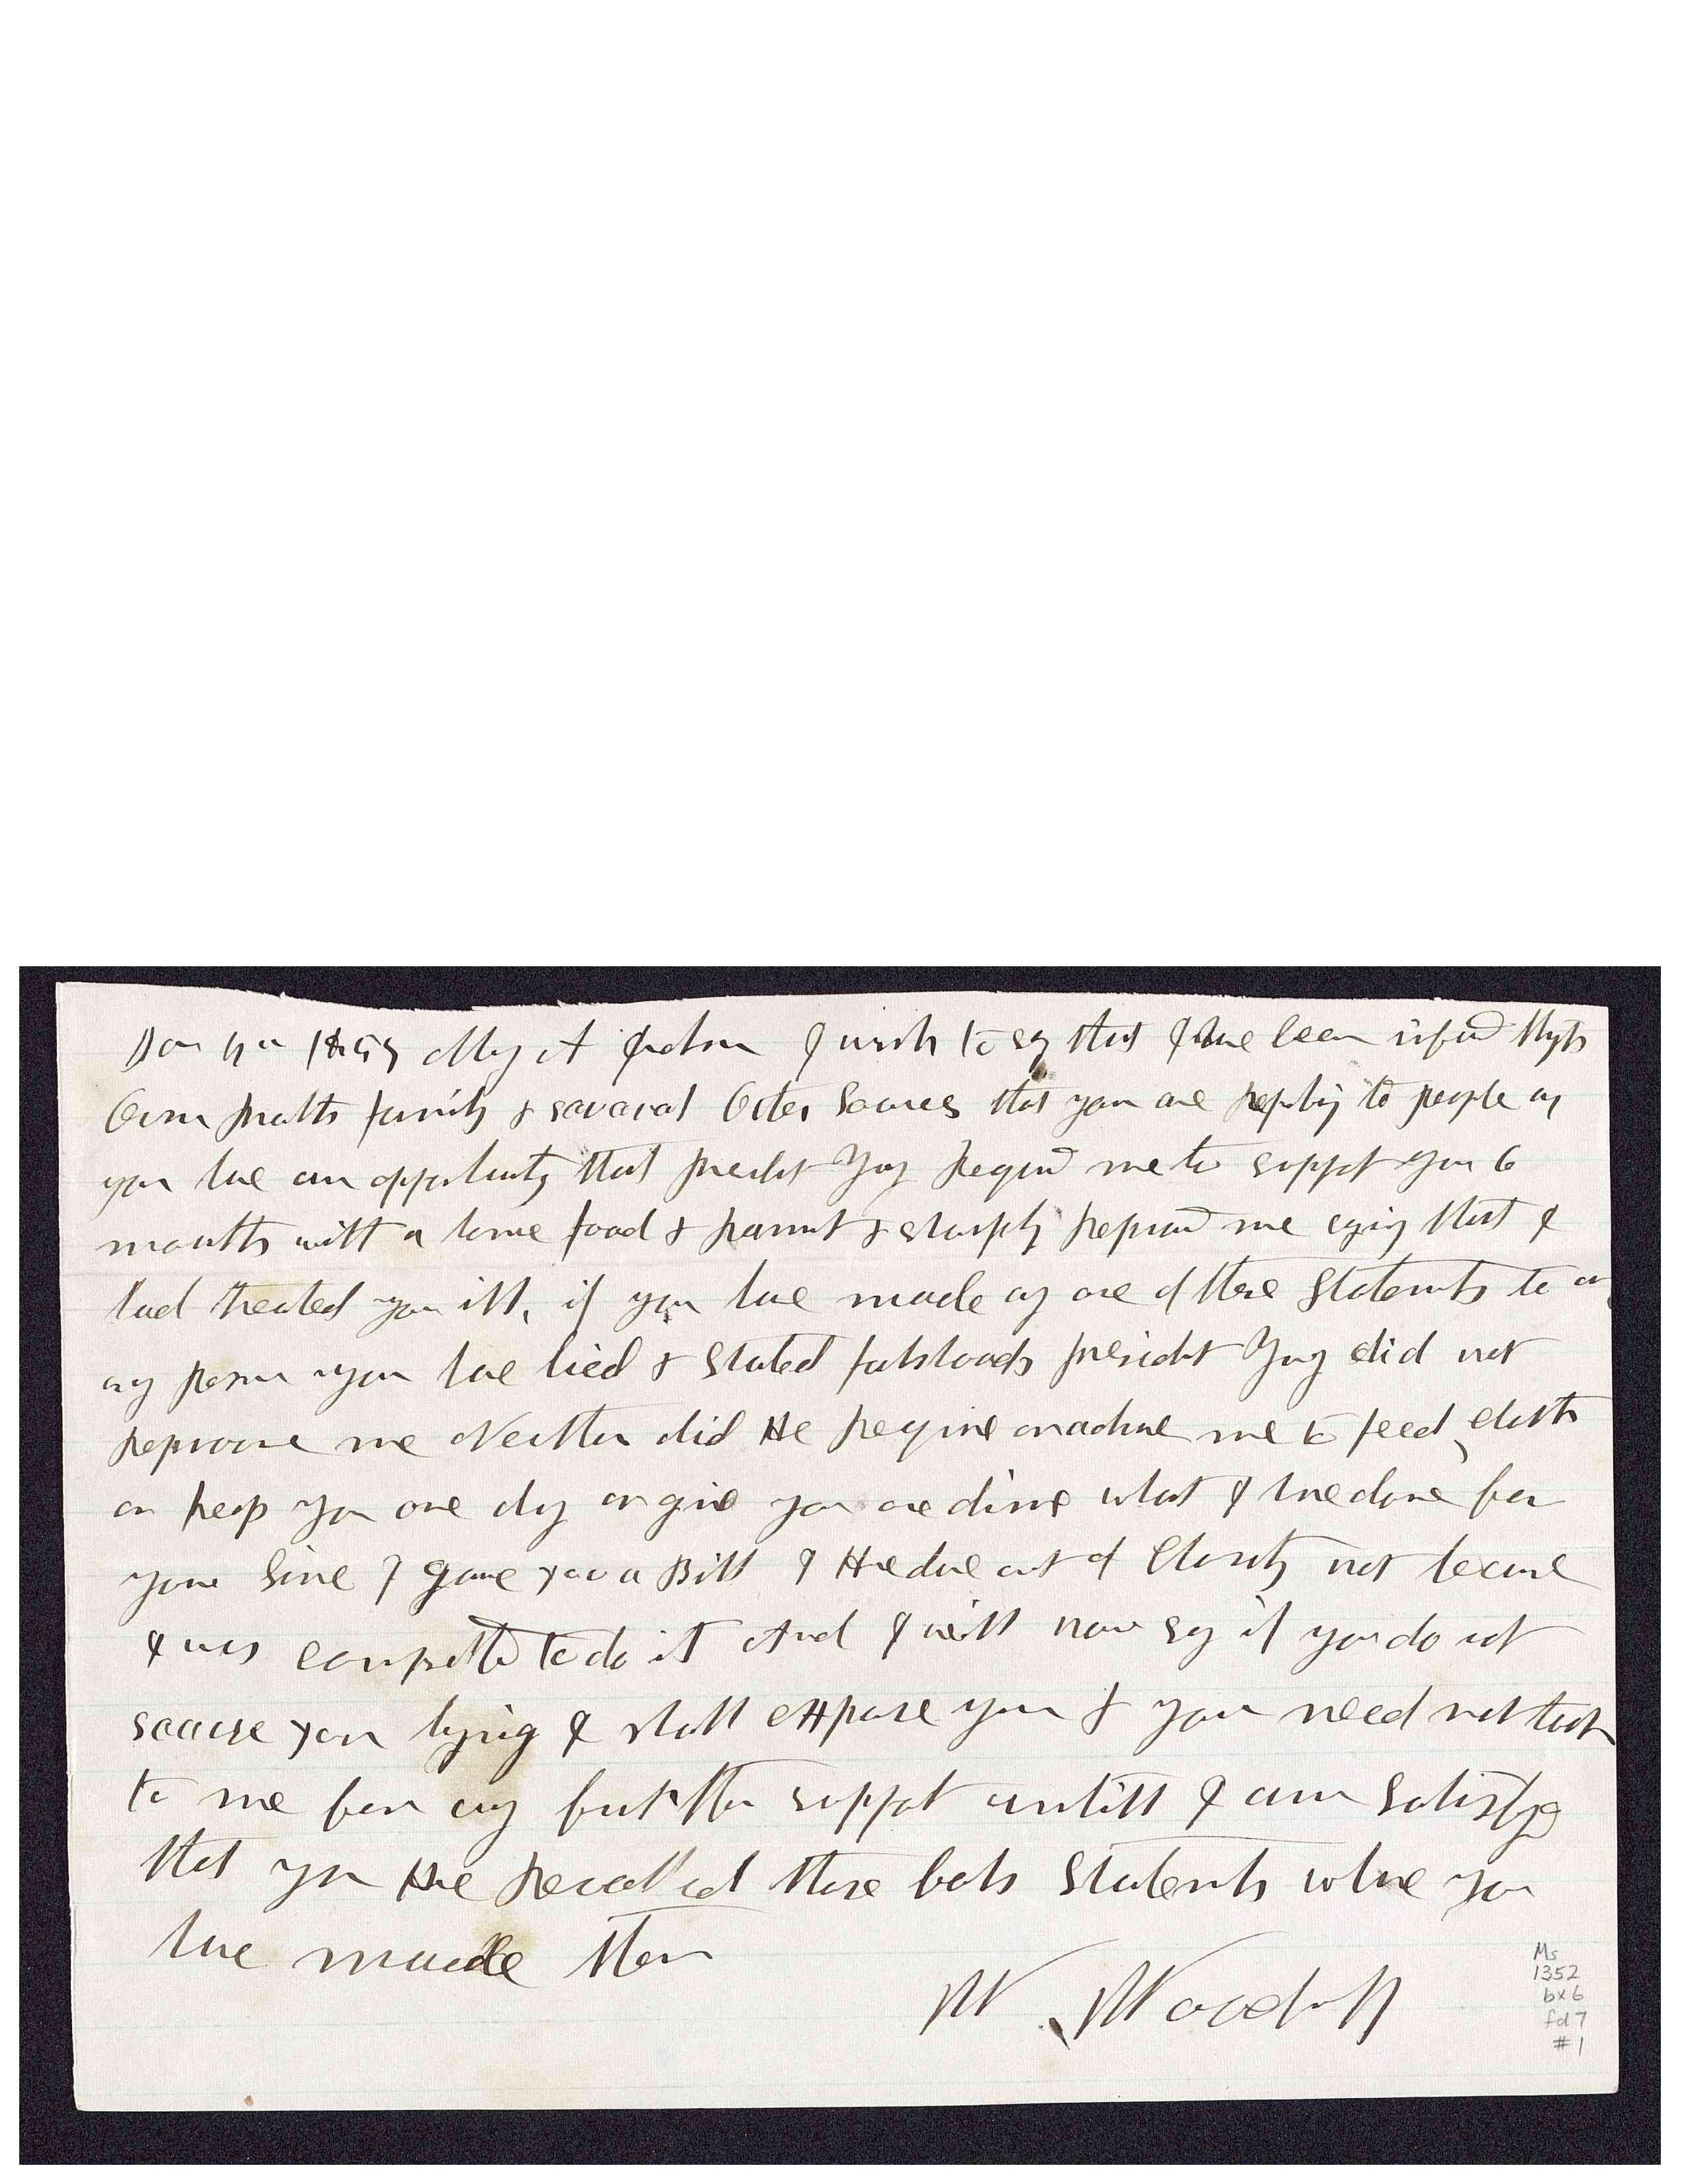 1859 Mary A Jackson I wish to say that I have been informd through
Orson Pratts family & several Other Sources that you are reporting to people as
you have an opportunity that President Young requird me to support you 6
months with a home food & & sharply reproved me saying that I
had treated you ill, if you have made any one of these Statements to an
any person you have lied & Stated falshoods President Young did not
reproove me Neither did He require or advise me to feed, cloth
or keep you one day or give you one dime what I have done for
you Sine I gave you a Bill I Have done out of Charity not because
I was compelld to do it And I will now say if you do not
you lying I shall expose you & you need not look
to me for any further support untill I am Satisfyed
that you Have recalled those fals Statements whare you
have maade them
W. Woodruff
Ms
1352
bx 6
fd 7
#1